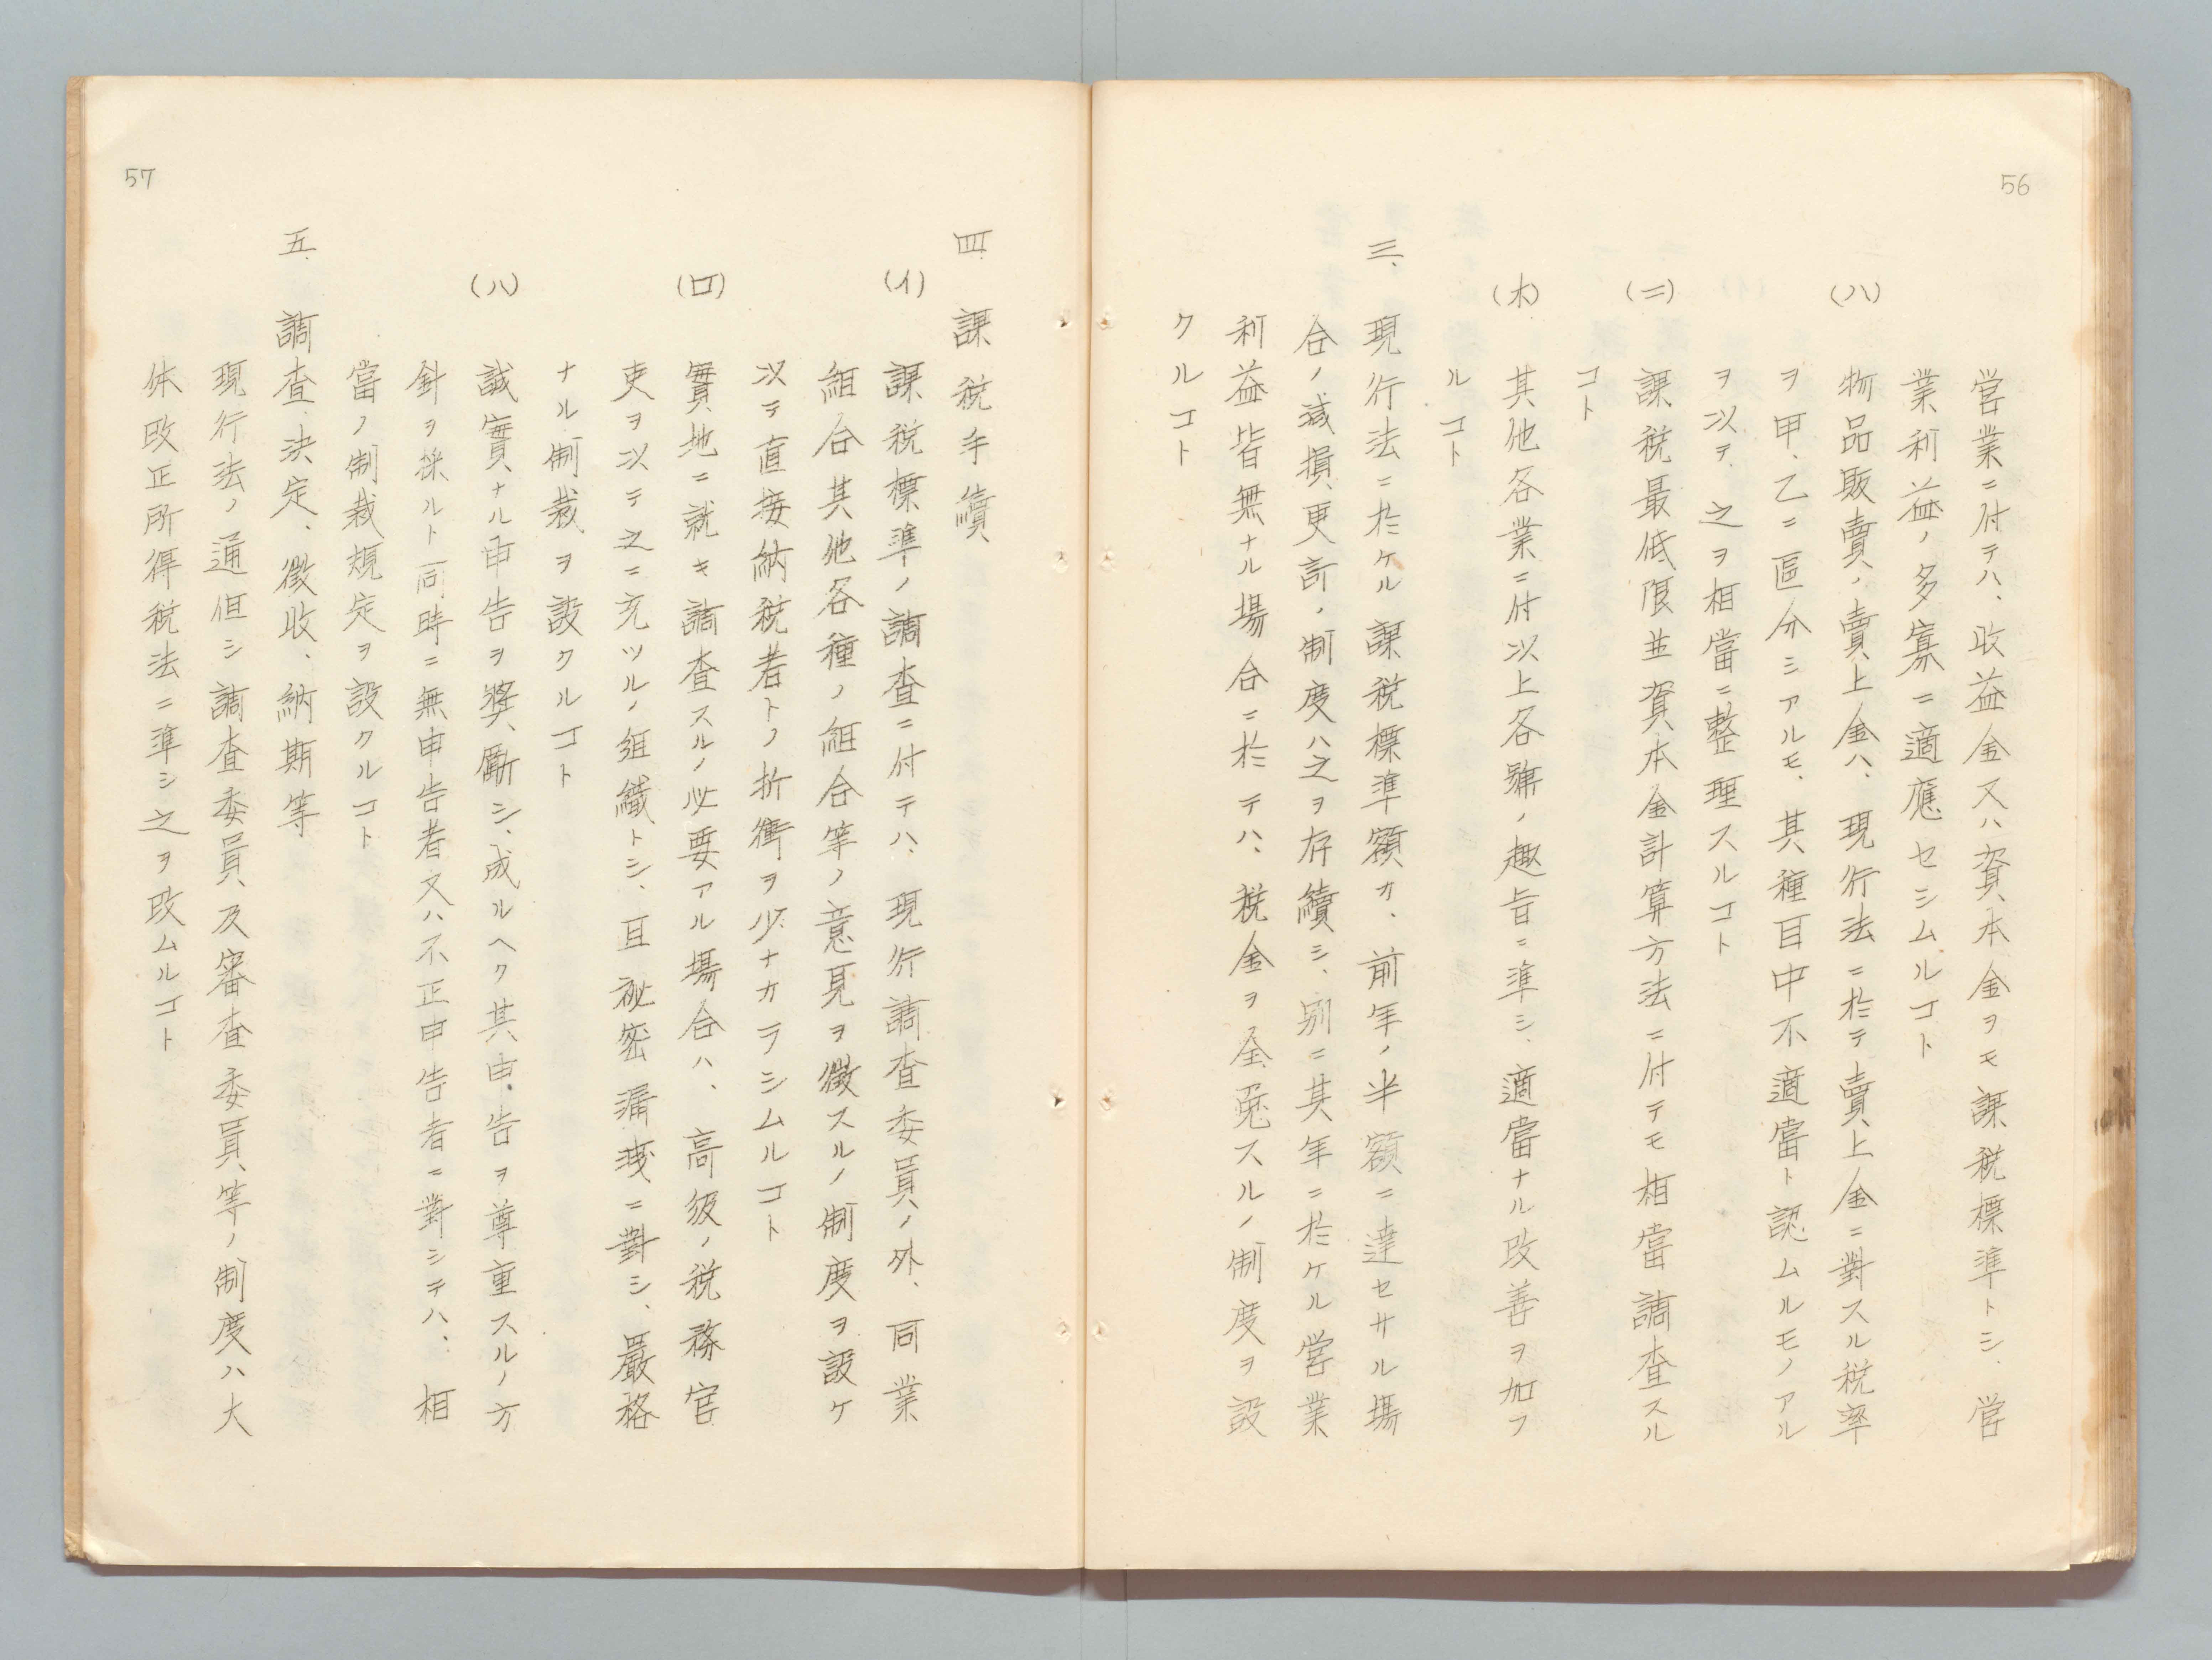 56
営業ニ付テハ、收益金又ハ資本金ヲモ課税標準トシ、営
業利益ノ多寡ニ適應セシムルコト
(ハ) 物品販賣ノ賣上金ハ、現行法ニ於テ賣上金ニ對スル税率
ヲ甲、乙ニ區分シアルモ、其種目中不適當ト認ムルモノアル
ヲ以テ、之ヲ相當ニ整理スルコト
(ニ) 課税最低限並資本金計算方法ニ付テモ相當調査スル
コト
(ホ) 其他各業ニ付以上各號ノ趣旨ニ準シ、適當ナル改善ヲ加フ
ルコト
三、現行法ニ於ケル課税標準額カ、前年ノ半額ニ達セサル場
合ノ減損更訂ノ制度ハ之ヲ存續シ、別ニ其年ニ於ケル営業
利益皆無ナル場合ニ於テハ、税金ヲ全免スルノ制度ヲ設
クルコト
57
四、課税手續
(イ) 課税標準ノ調査ニ付テハ、現行調査委員ノ外、同業
組合其他各種ノ組合等ノ意見ヲ徴スルノ制度ヲ設ケ
以テ直接納税者トノ折衝ヲ少ナカラシムルコト
(ロ) 實地ニ就キ調査スルノ必要アル場合ハ、高級ノ税務官
吏ヲ以テ之ニ充ツルノ組織トシ、且祕密漏洩ニ對シ、嚴格
ナル制裁ヲ設クルコト
(ハ) 誠實ナル申告ヲ奬勵シ、成ルヘク其申告ヲ尊重スルノ方
針ヲ採ルト同時ニ無申告者又ハ不正申告者ニ對シテハ、相
當ノ制裁規定ヲ設クルコト
五、調査、決定、徴收、納期等
現行法ノ通但シ調査委員及審査委員等ノ制度ハ大
体改正所得税法ニ準シ之ヲ改ムルコト